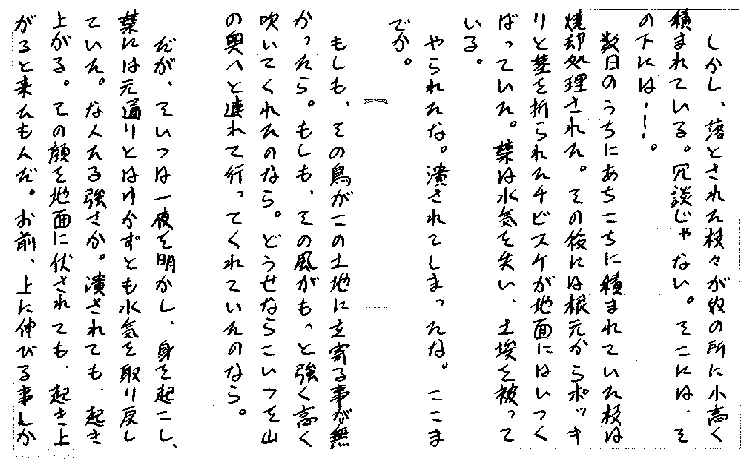 しかし、落とされた枝々が牧の所に小高く
積まれている。冗談じゃない。そこには、そ
の下には……。
数日のうちにあちこちに積まれていた枝は
焼却処理された。その後には根元からポッキ
リと茎を折られたチビスケが地面にはいつく
ばっていた。葉は水気を失い、土埃を被って
いる。
やられたな。潰されてしまったな。ここま
でか。
もしも、その鳥がこの土地に立寄る事が無
かったら。もしも、その風がもっと強く高く
吹いてくれたのなら。どうせならこいつを山
の奥へと連れて行ってくれていたのなら。
だが、そいつは一夜を明かし、身を起こし、
葉には元通りとはゆかずとも水気を取り戻し
ていた。なんたる強さか。潰されても、起き
上がる。その顔を地面に伏されても、起き上
がると来たもんだ。お前、上に伸びる事しか